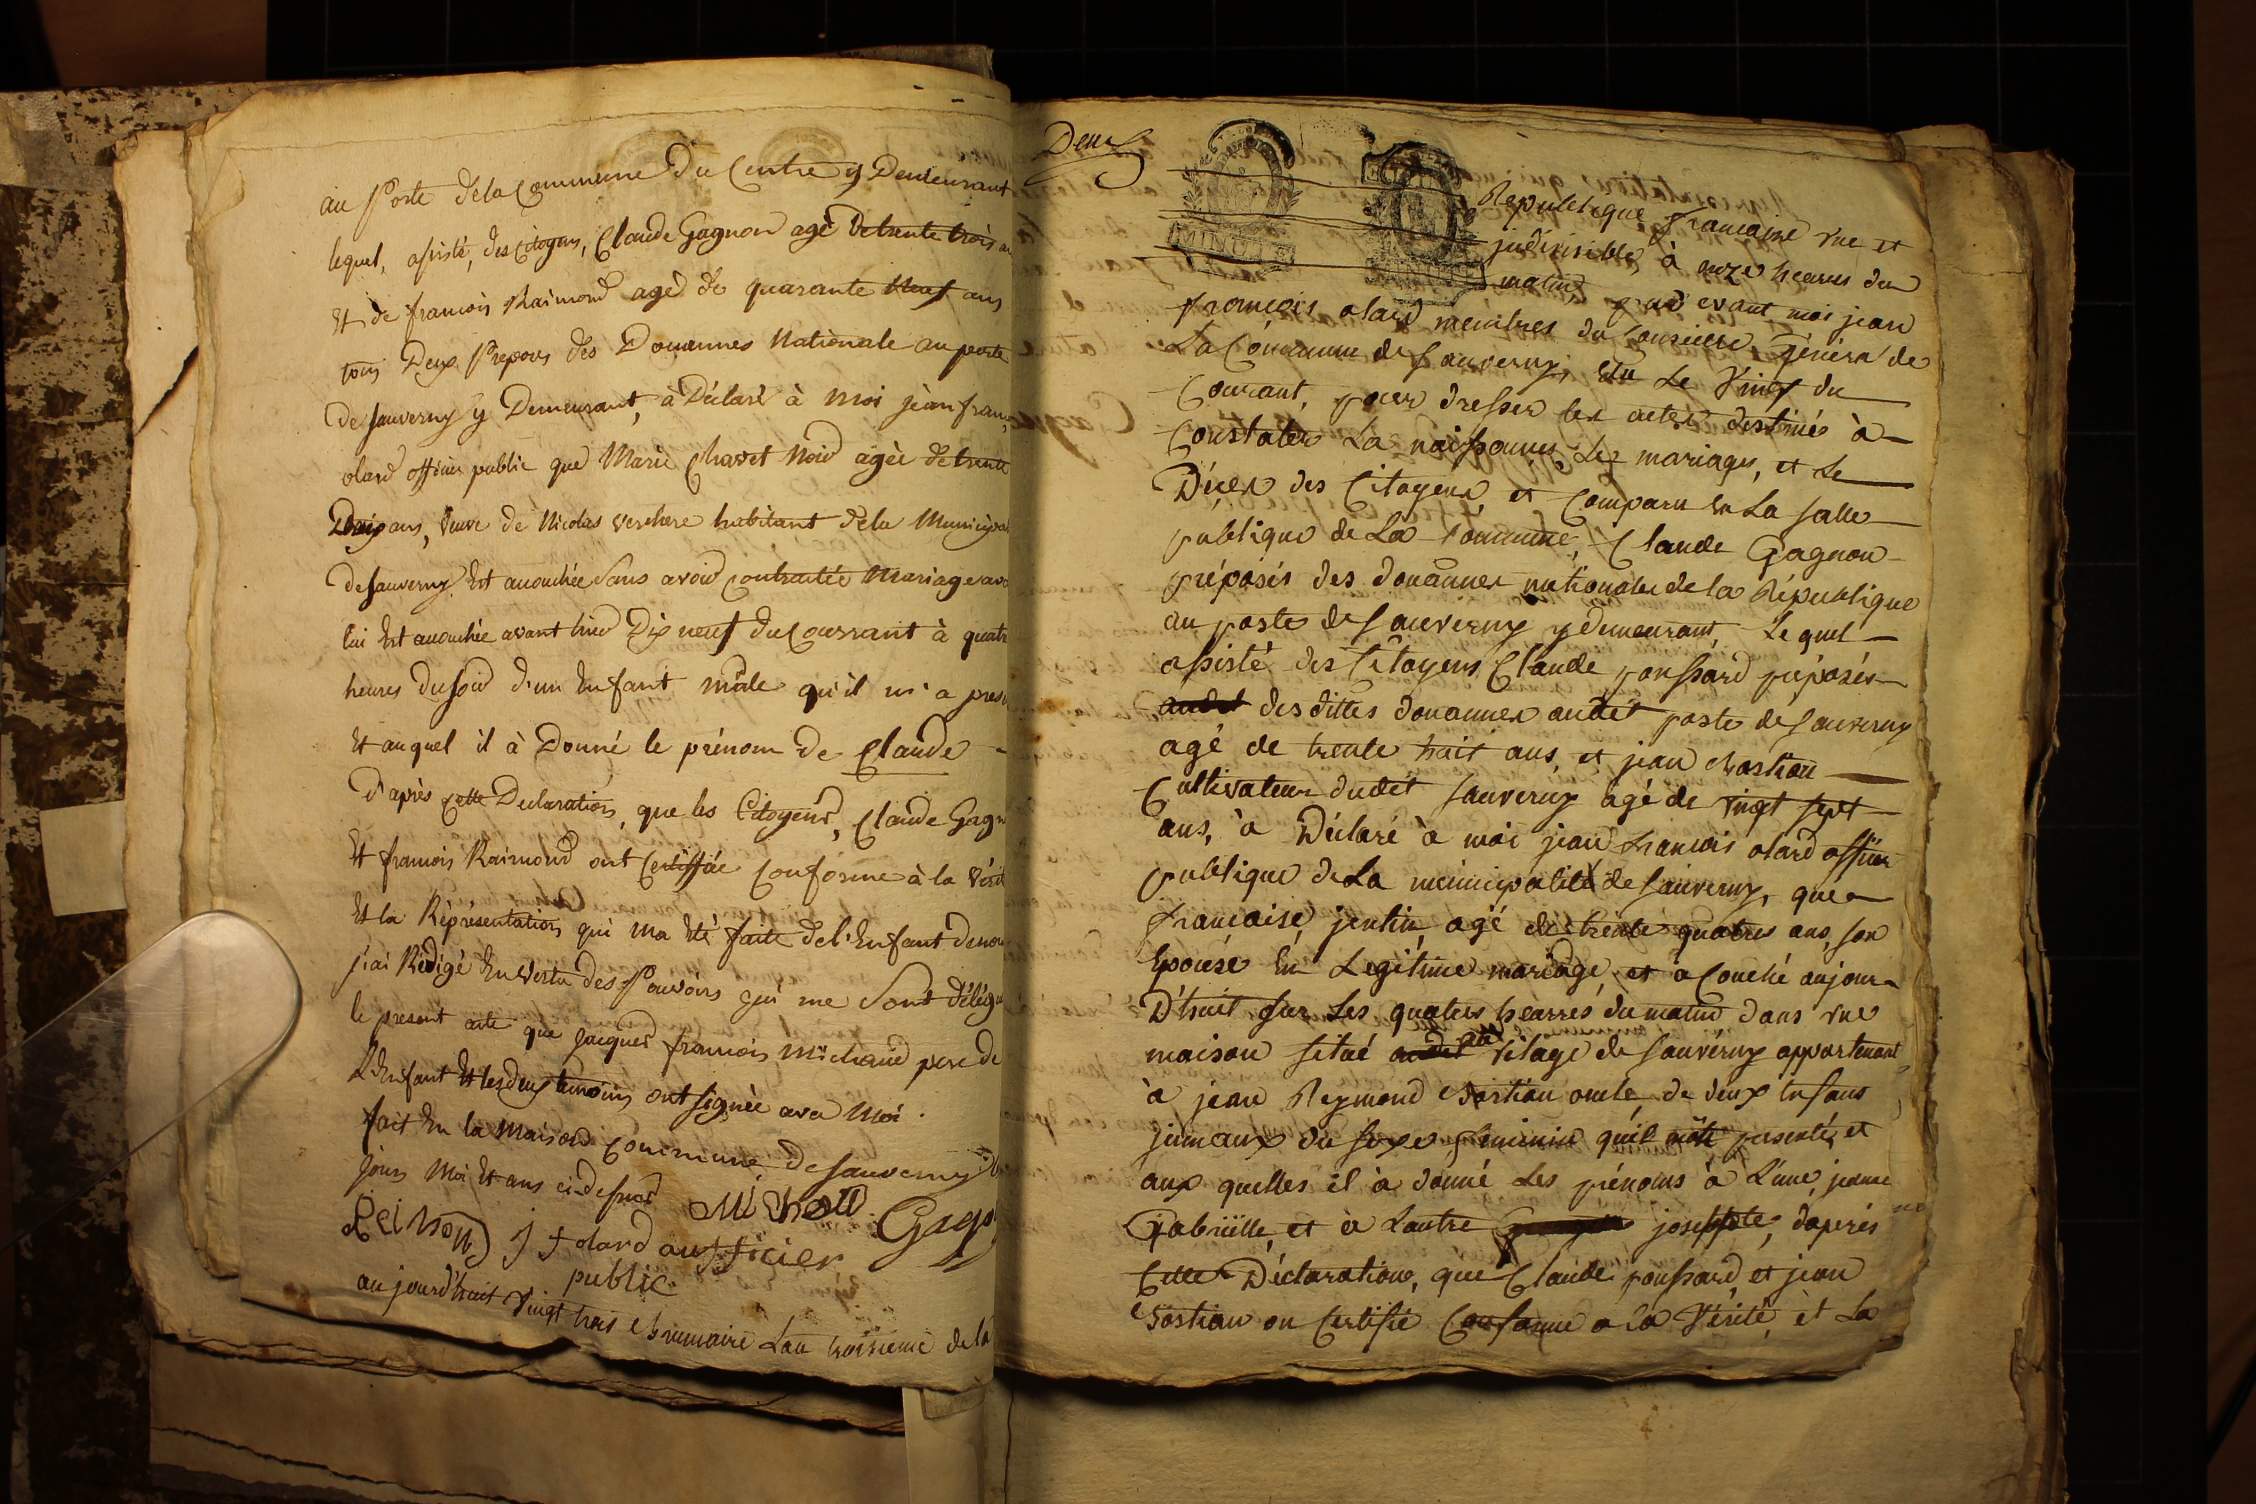 au Poste dela Commune Du Centre y Demeurant
lequel, assisté, des Citoyens, Claude Gagnon agé de trente trois an
Et de francois Raimond agé de quarante Neuf ans
tous Deux Preposés des Douannes Nationale au poste
de Sauverny y Demeurant, à Déclaré à Moi jean franç
olard officier public que Marie Chavet Noid agée de trente
ans, veuve de Nicolas verchere habitant dela Municipal
de Sauverny Est accouchée Sans avoir contractée Mariage avec
lui Est accouchée avant hier Dix neuf du Courrant à quatre
heures du soir d'un Enfant mâle qu'il m'a presen
Et auquel il à Donné le prénom De Claude
D'après cette Declaration, que les Citoyens, Claude Gagn
Et francois Raimond ont Certiffiée Conforme à la Vérit
Et la Réprésentation qui ma Eté faite del'Enfant denom
j'ai Rédigé En Vertu des Pouvoirs qui me Sont délégu
le present acte que Jacques francois Michaud pere de
L'Enfant Et les deux temoins ont signée avec Moi.
fait En la Maison Commune de Sauverny
jours Moi Et ans ci-dessus
J f olard aufficier Gagn
public
aujourd'huit Vingt trois Brumaire Lan troisieme dela
Deux
MINUTE
Republique francaise vne et
jndivisible, à onze heures du
matin, pard'evant moi jean
francois olard membres du Conseille Génèral de
La Commune de Sauverny, Elu Le Vingt du
Courant, pour dresser les actes destiné à
Constater La naissances, Les mariages, et Le
Décex des Citoyens, et Comparu En La salle
publique de La Commune, Claude Gagnon
préposés des douannes nationales de la République
au poste de Sauverny y demeurant, Lequel
assisté des Citoyens Claude ponssard préposés
audit des dittes douannes audit poste de Sauverny
agé de trente huit ans, et jean Bastian
Cultivateur dudit Sauverny agé de vingt sept
ans, à Déclaré à moi jean francois olard officier
publique de La municipalité de Sauverny, que
francaise jentin, agé de trente quatres ans, son
Epouse En Legitime mariage, et a Couché aujour
D'huit sur Les quatres hearres du matin dans vne
maison situé au vilage de Sauverny appartenant
à jean Reymond Bastian oncle, de deux Enfans
jumaux du sexe feminin qu'il môte presenté, et
aux quelles il à donné Les prénoms à L'une, jeanne
Gabriëlle, et à Lautre josephte, daprés
Cette Déclaration, que Claude ponssard, et jean
Bastian on Certifié Conforme a la Vérité, et La